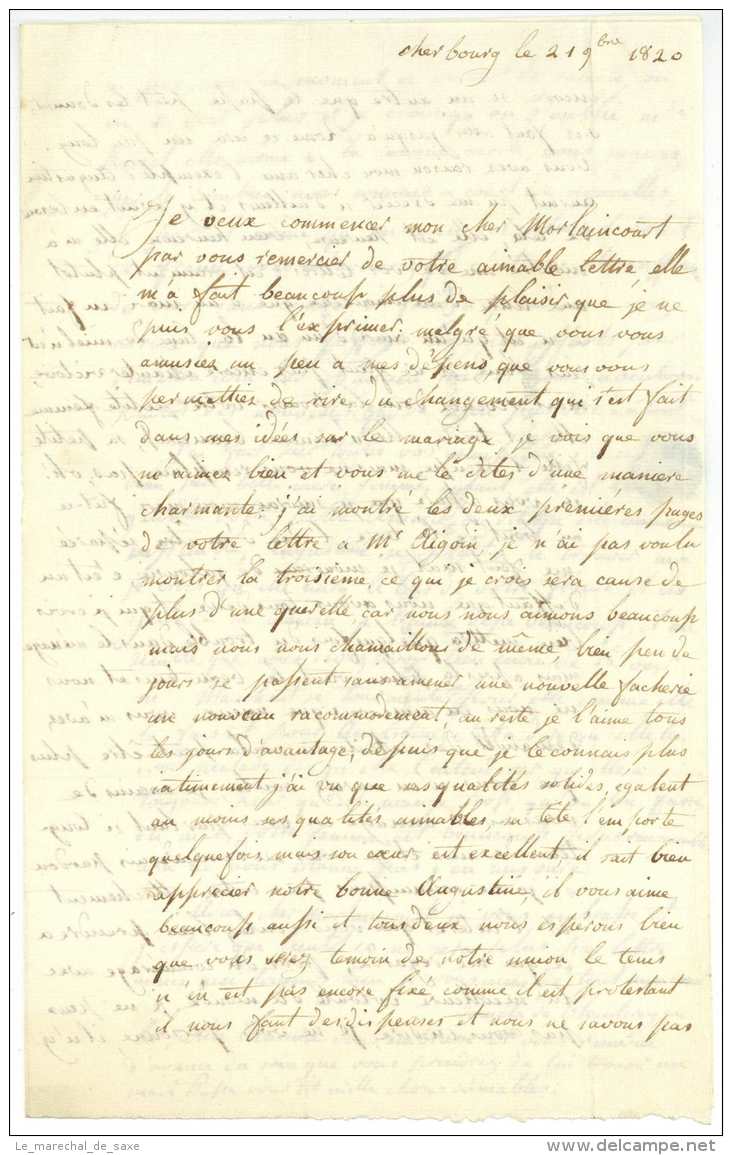 cherbourg le 21 9bre 1820
Je veux commencer mon cher Morlaincourt
par vous remercier de votre aimable lettre, elle
m'a fait beaucoup plus de plaisir que je ne
puis vous l'exprimer. malgré que vous vous
amusiez un peu a mes dépens, que vous vous
permettiez de rire du changement qui s'est fait
dans mes idées sur le mariage je vois que vous
m aimez bien et vous me le dites d'une maniere
charmante; j'ai montré les deux premiéres pages
de votre lettre a Mr Aigoin, je n'ai pas voulu
montrer la troisieme, ce qui je crois sera cause de
plus d'une querelle, car nous nous aimons beaucoup
mais nous nous chamaillons de même, bien peu de
jours se passent sans amener une nouvelle facherie
un nouveau racommodement, au reste je l'aime tous
les jours d'avantage; depuis que je le connais plus
intimement j'ai vu que ses qualités solides, égalent
au moins ses qualités aimables, sa tête l'emporte
quelquefois, mais son cœur est excellent, il sait bien
apprecier notre bonne Augustine, il vous aime
beaucoup aussi et tous deux nous espérons bien
que vous serez temoin de notre union le tems
n'en est pas encore fixé comme il est protestant
il nous faut des dispenses et nous ne savons pas
Le_marechal_de_saxe
www.delcampe.net